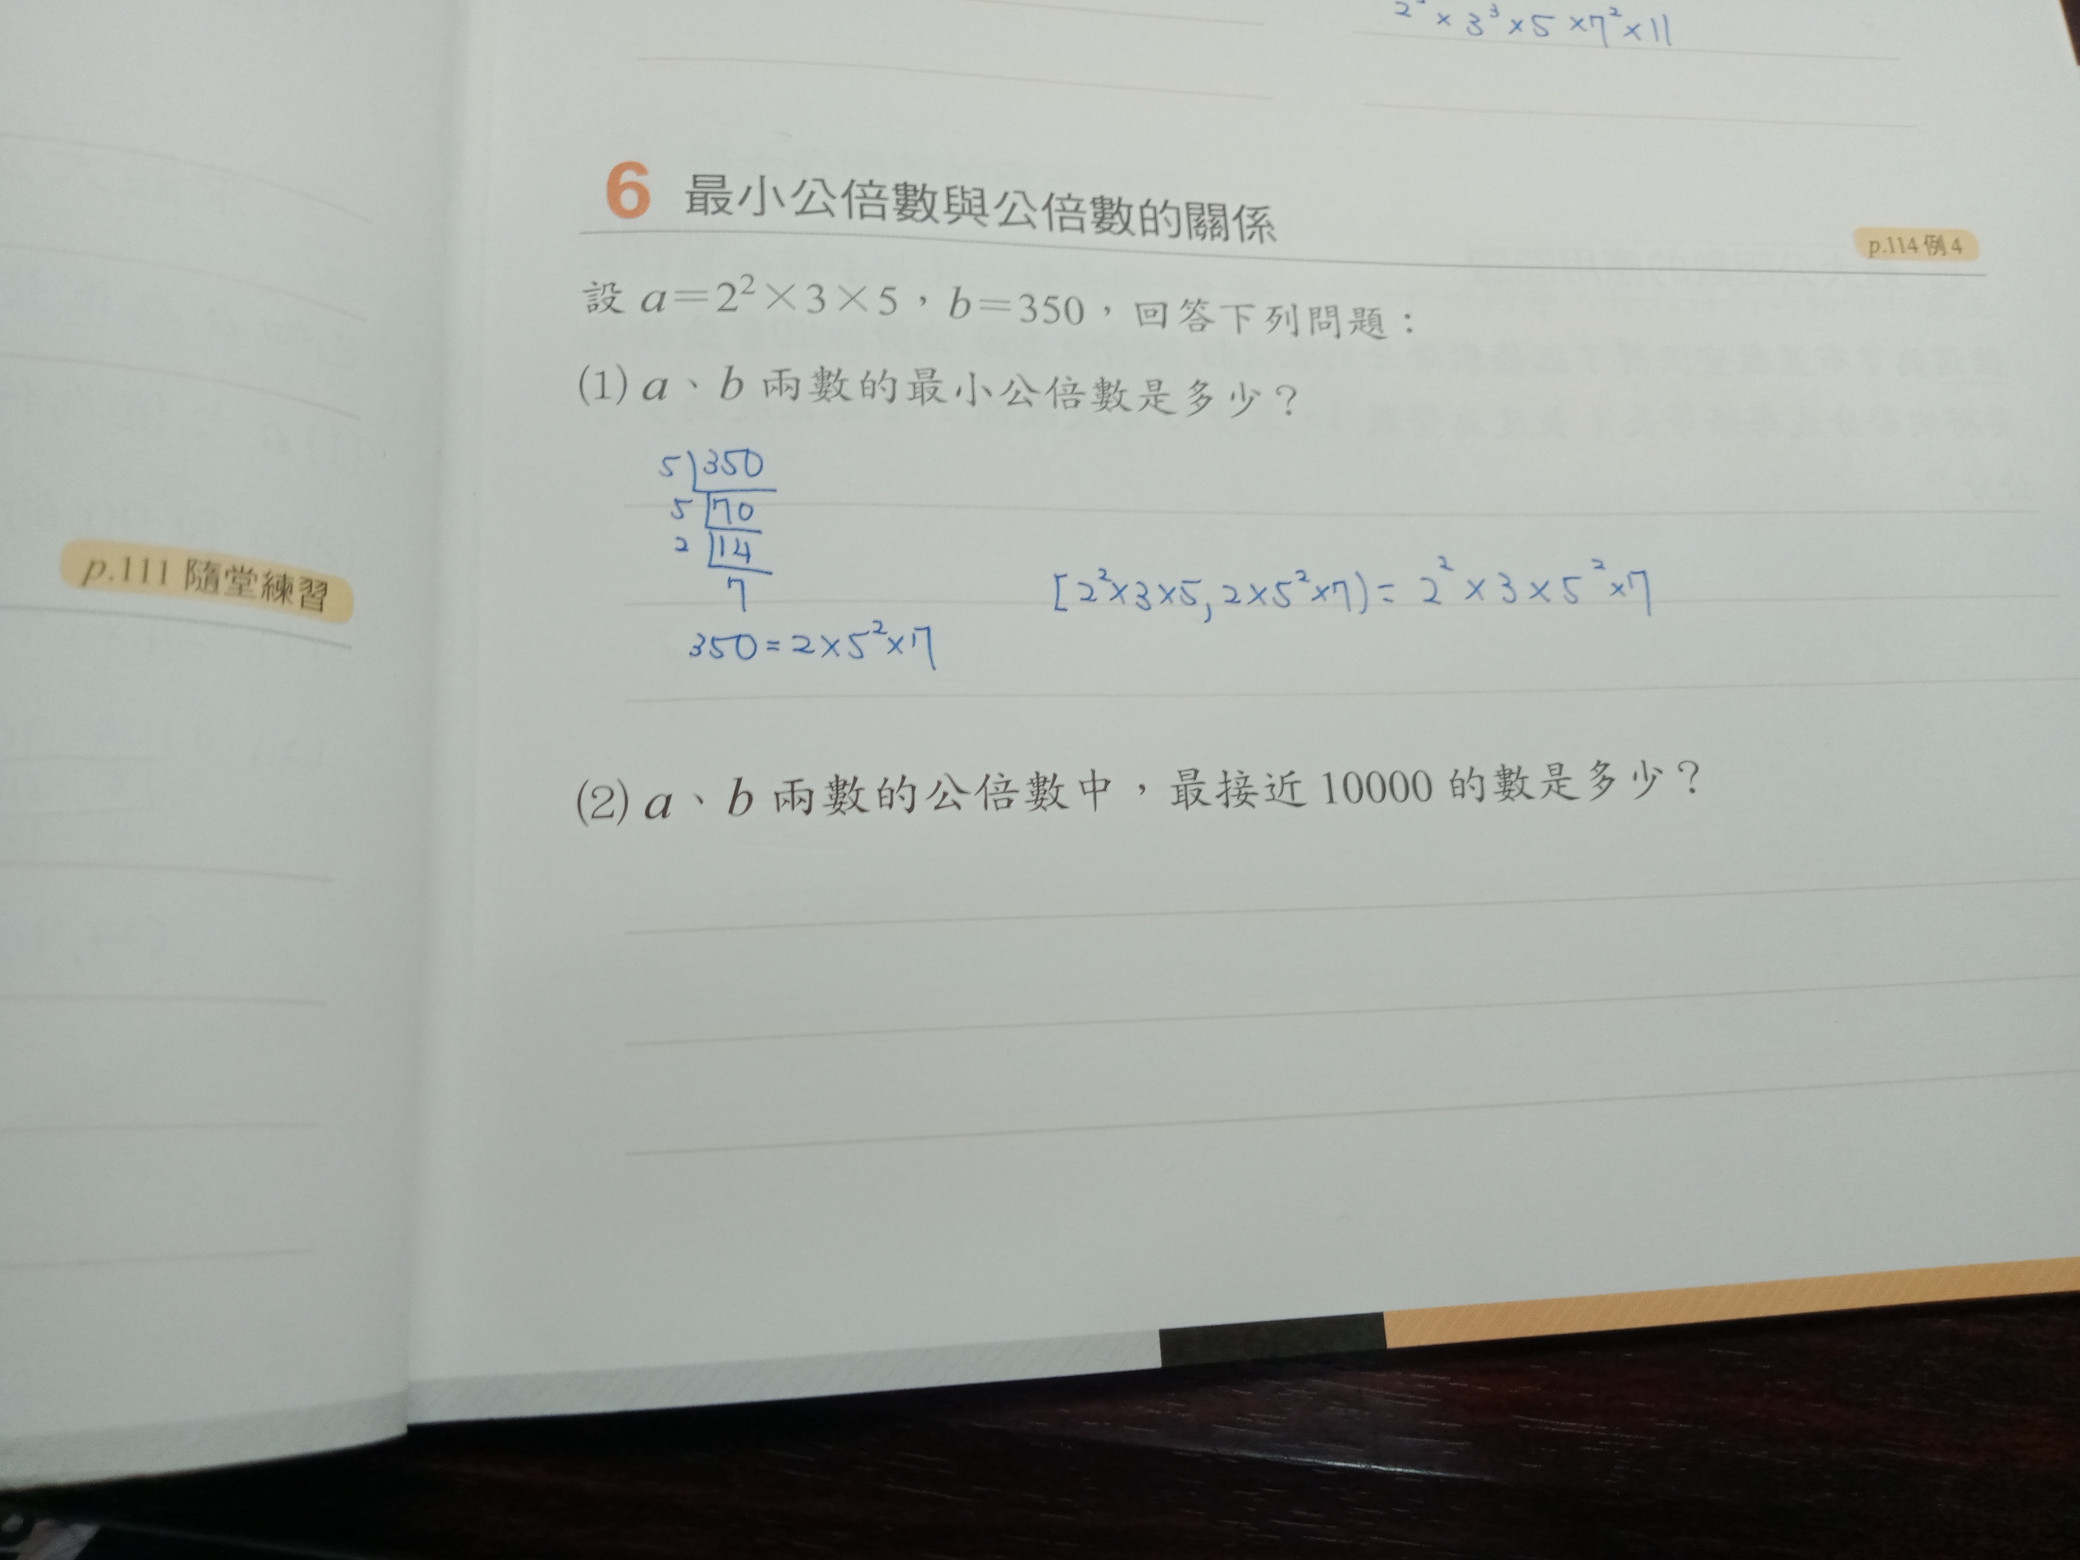 2² × 3³ × 5 × 7² × 11
6 最小公倍數與公倍數的關係
p.114 例 4
設 a=2²×3×5，b=350，回答下列問題：
(1) a、b 兩數的最小公倍數是多少？
5 350
5 70
2 14
7
350 = 2 × 5² × 7
[2²×3×5, 2×5²×7) = 2² × 3 × 5² × 7
p.111 隨堂練習
(2) a、b 兩數的公倍數中，最接近 10000 的數是多少？